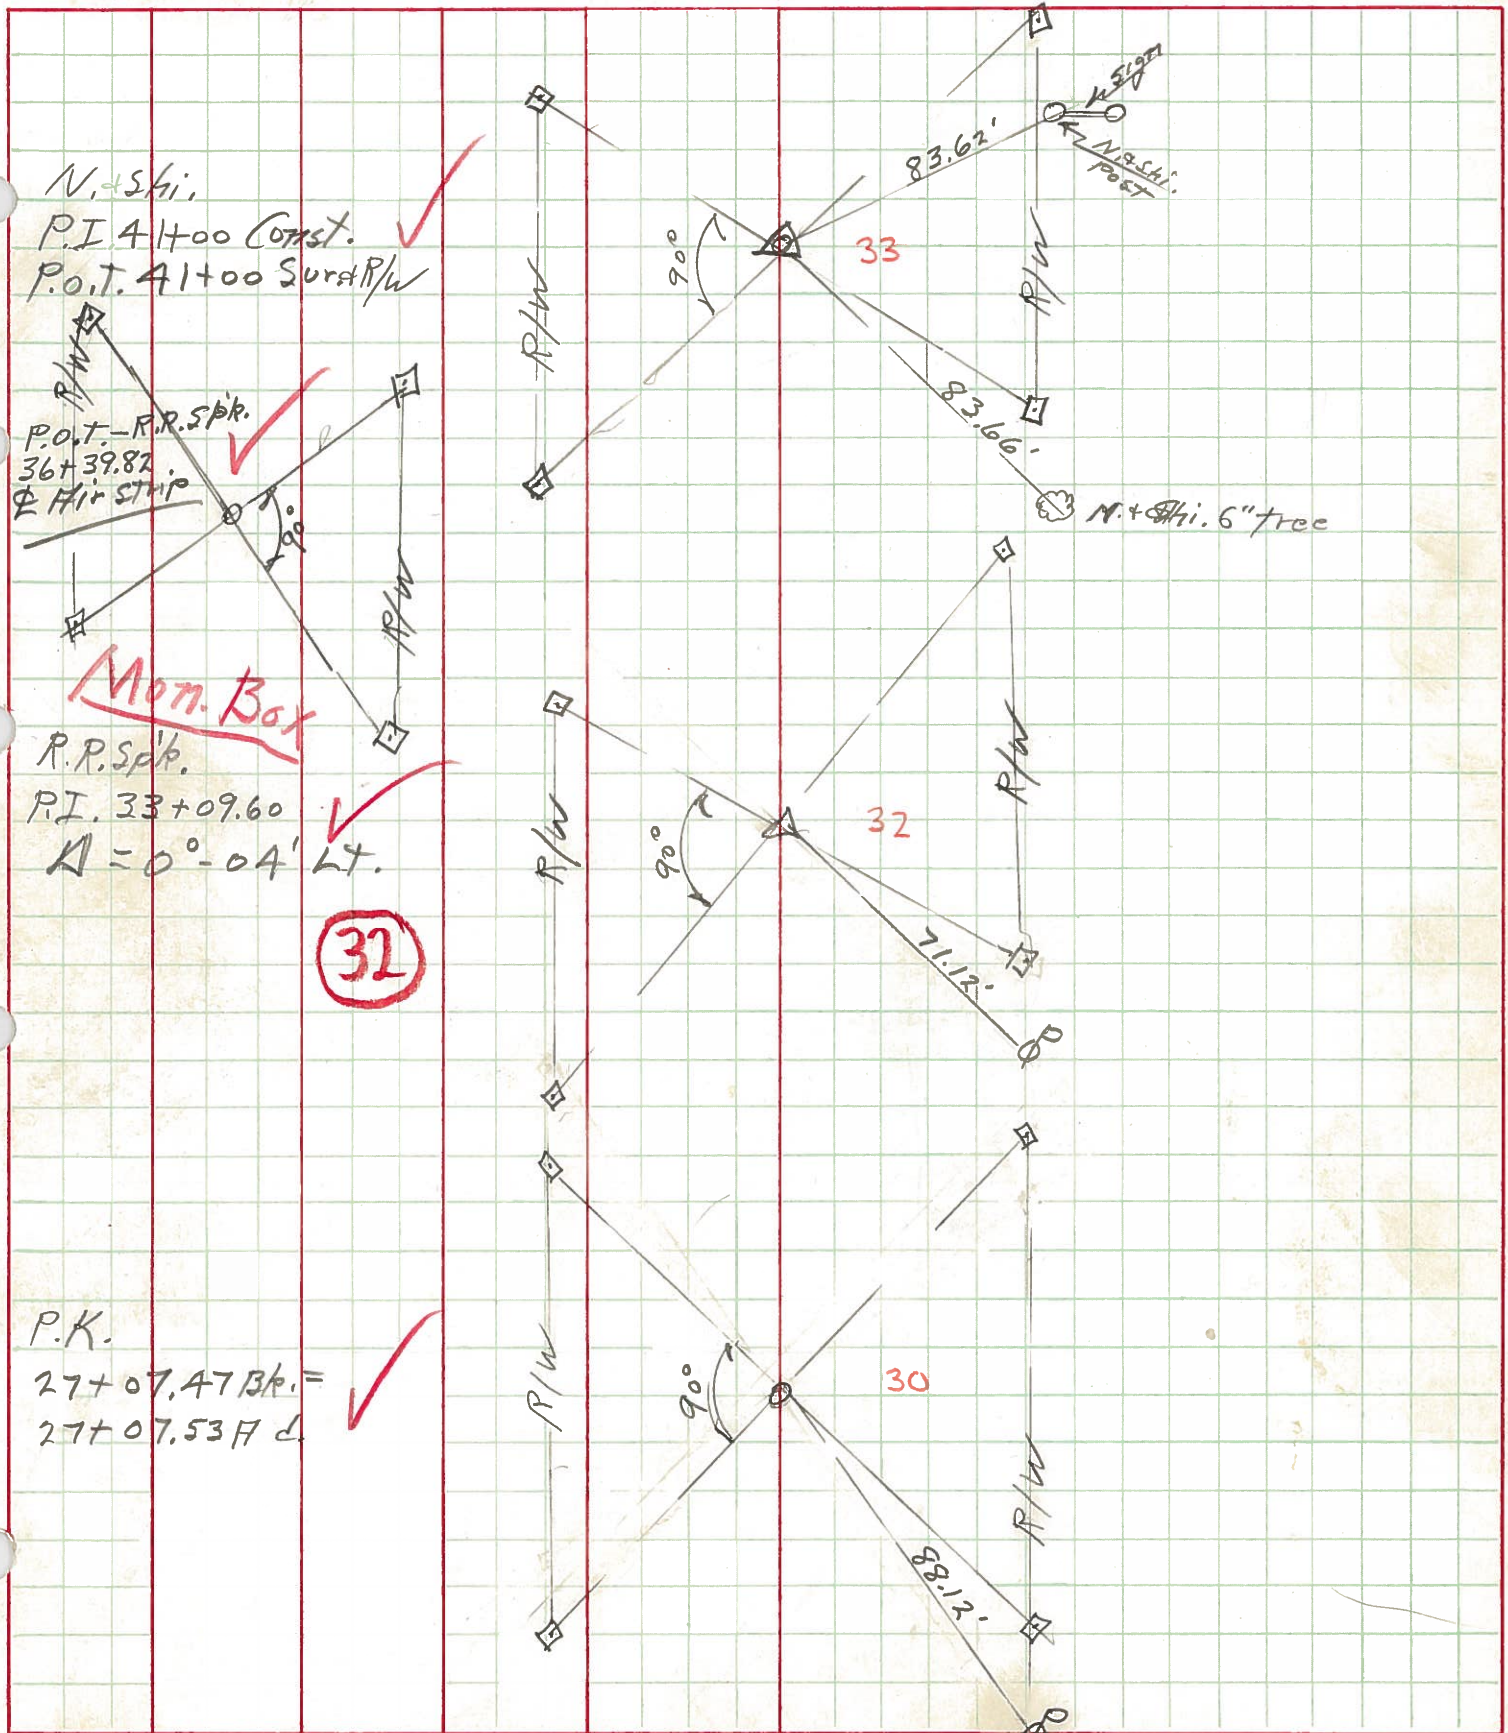 N. + Shi.
P.I. 41+00 Const.
P.O.T. 41+00 Sur & R/W
R/W
P.O.T. - R.R. Spk.
36+39.82
℄ Air Strip
90°
R/W
Mon. Box
R.R. Spk.
P.I. 33+09.60
Δ = 0° - 04' Lt.
32
P.K.
27+07.47 Bk. =
27+07.53 A d.
Sign
83.62'
N. + Shi.
Post
90°
33
R/W
R/W
83.66'
N. + Shi. 6" tree
R/W
R/W
90°
32
71.12'
R/W
90°
30
R/W
88.12'